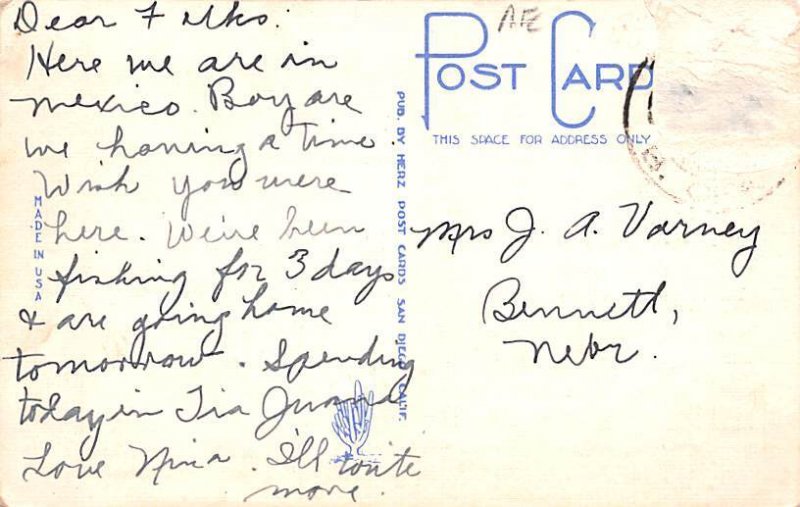 Dear Folks:
Here we are in
Mexico. Boy are
we having a time.
Wish you were
here. We've been
fishing for 3 days
& are going home
tomorrow. Spending
today in Tia Juana
Love Nina. I'll write
more.
MADE IN USA
PUB. BY HERZ POST CARDS SAN DIEGO CALIF.
AE
POST CARD
THIS SPACE FOR ADDRESS ONLY
Mrs J. A. Varney
Bennett,
Nebr.